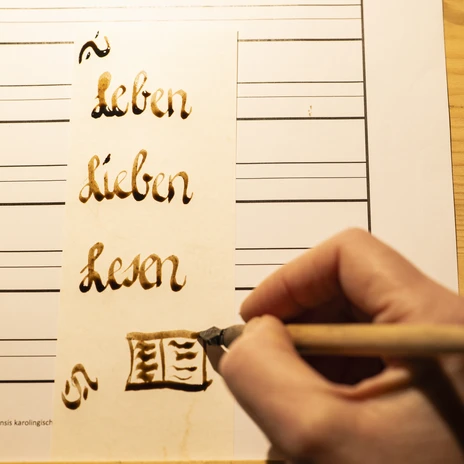 Leben
Lieben
Lesen
nsis karolingisch